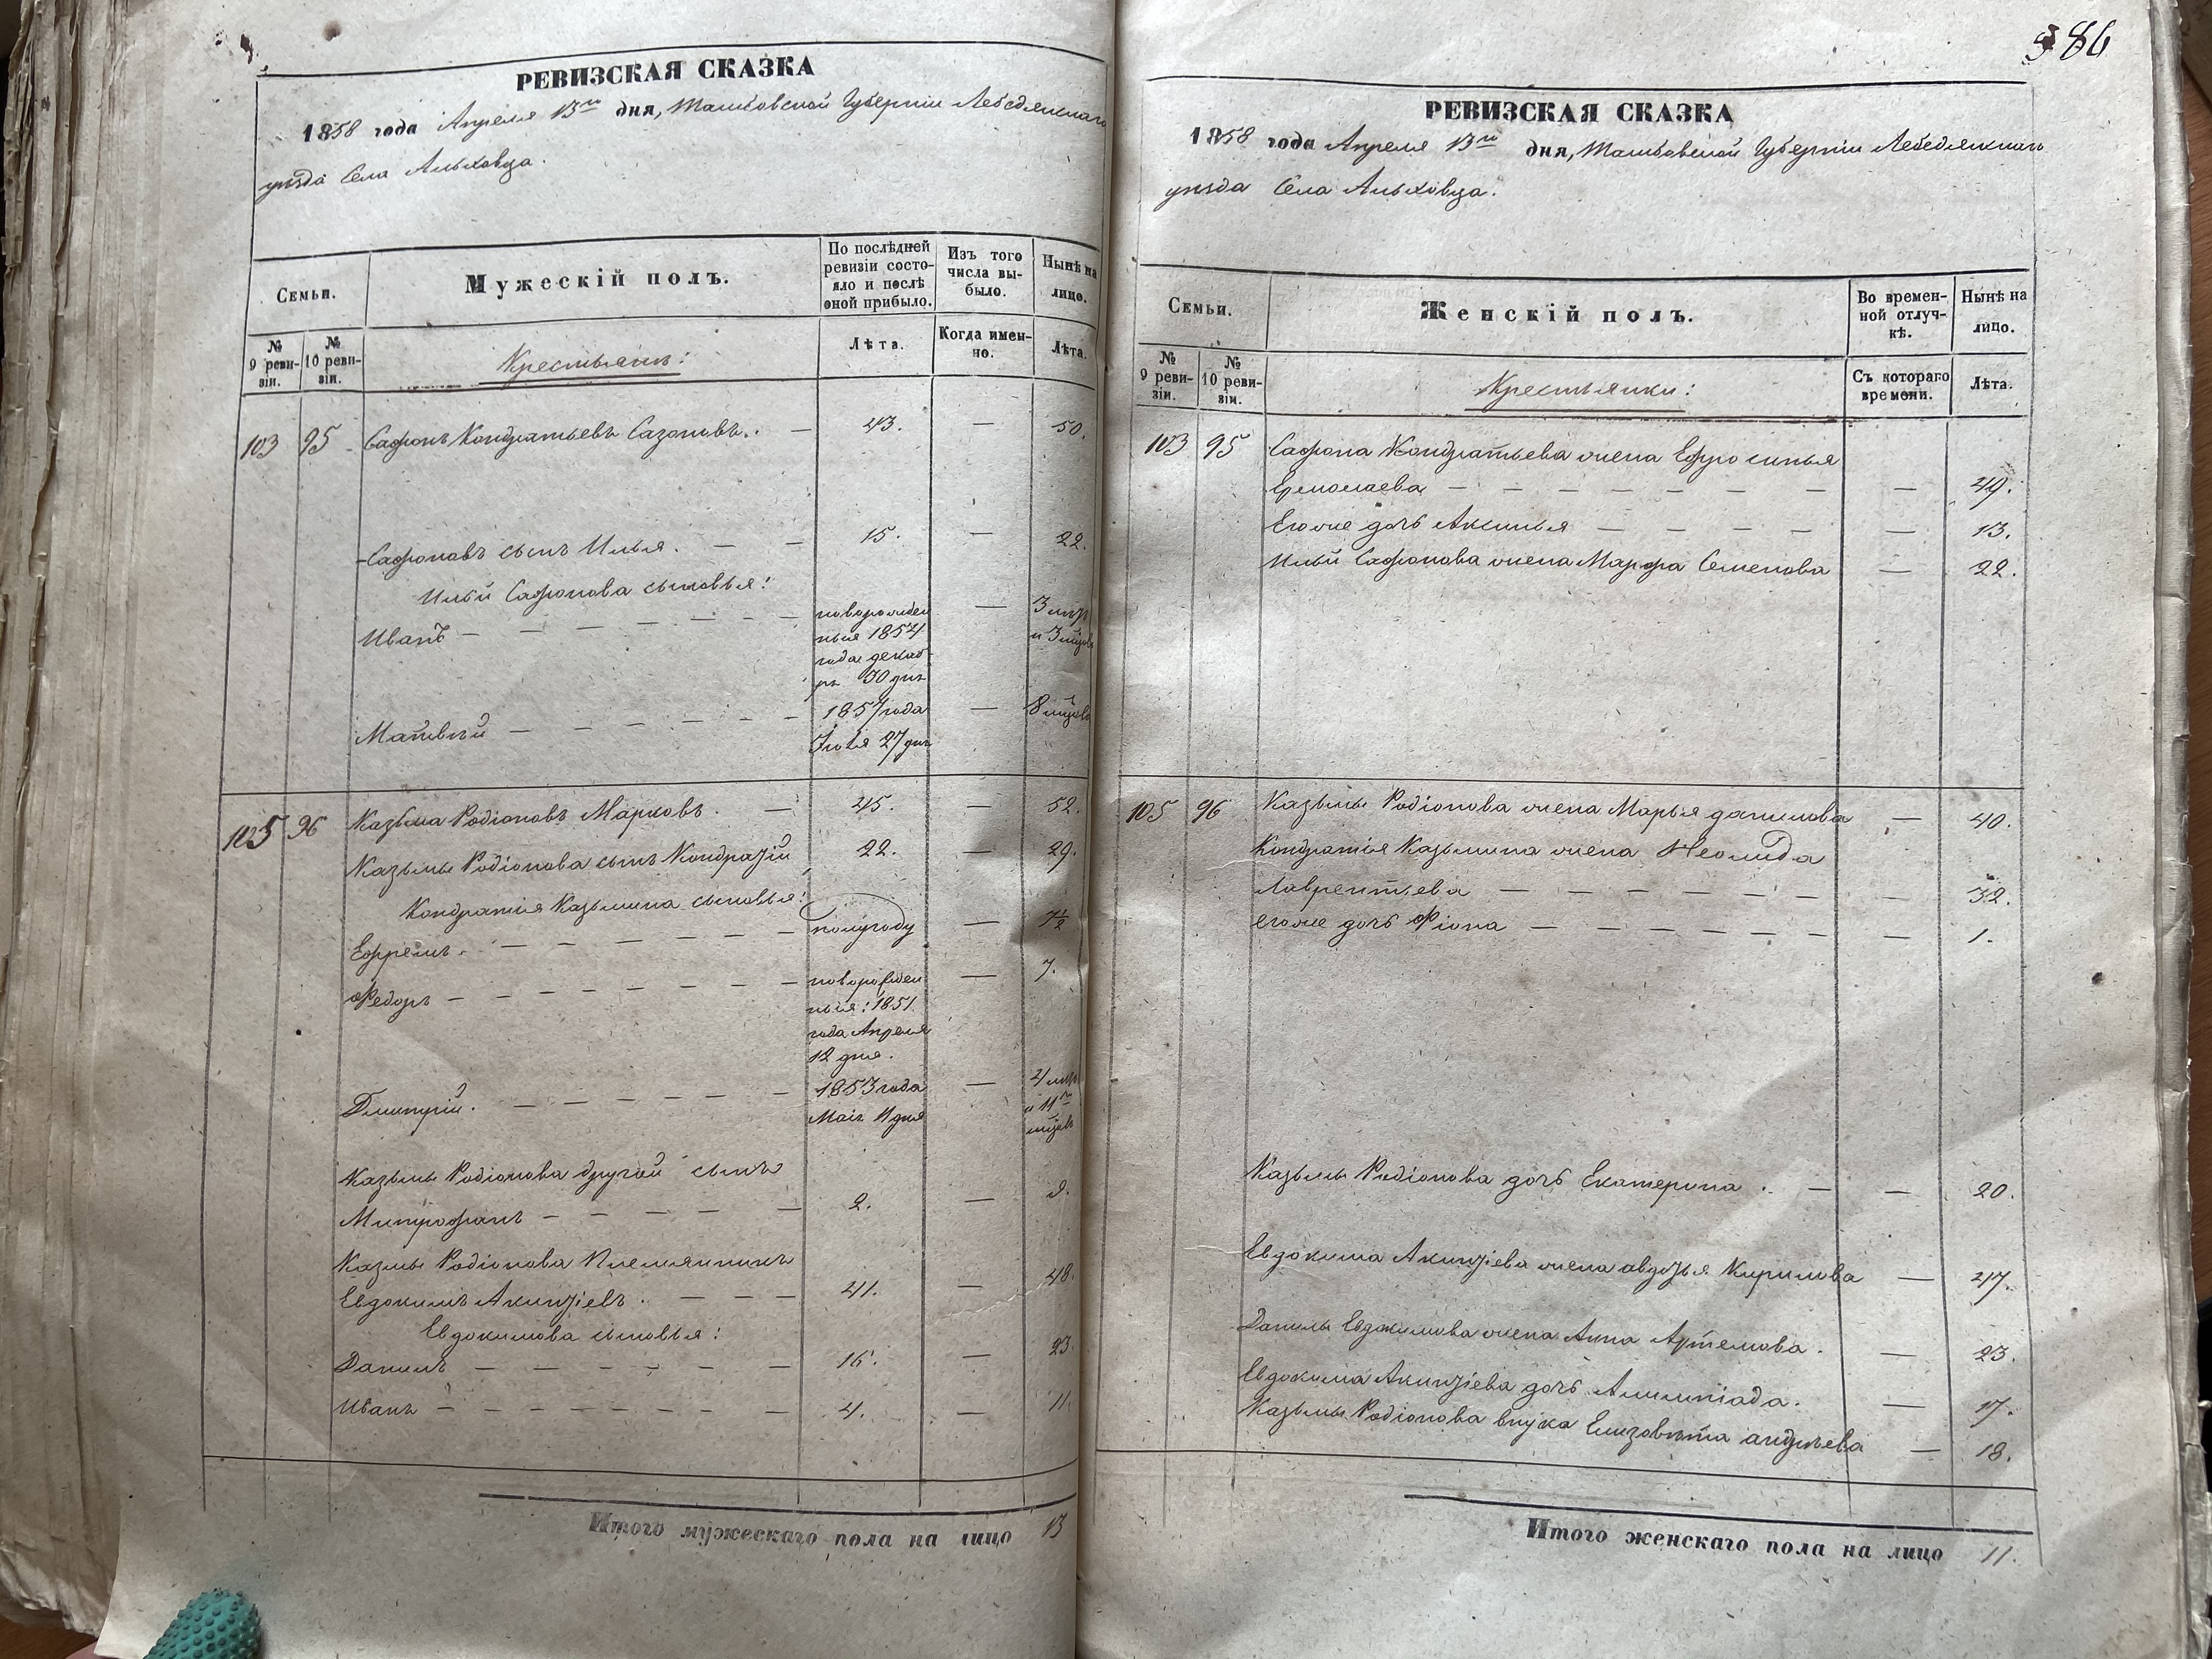 РЕВИЗСКАЯ СКАЗКА
1858 года Апреля 13го дня, Тамбовской Губернiи Лебедянскаго
уѣзда Села Альховца.
Семьи.
Мужескiй полъ.
По послѣдней ревизiи состояло и послѣ оной прибыло.
Изъ того числа выбыло.
Нынѣ на лицо.
№ 9 ревизiи.
№ 10 ревизiи.
Крестьянъ:
Лѣта.
Когда именно.
Лѣта.
103 95 Сафонъ Кондратьевъ Сазоновъ. — 43. — 50.
Сафоновъ сынъ Илья. — — 15. — 22.
Ильи Сафонова сыновья:
Иванъ — — — — — — — новорожденныя 1854 года декабрѣ 30 дня — 3 лѣтъ и 3 мѣцов
Матвѣй — — — — — 1857 года Iюля 27 дня — 8 мѣцовъ
105 96 Казьма Родiоновъ Марковъ. — 45. — 52.
Казьмы Родiонова сынъ Кондратiй 22. — 29.
Кондратiя Казьмина сыновья:
Ефремъ. — — — — — — полугоду — 7½
Федоръ — — — — — — — новорожденныя: 1851 года Апреля 12 дня. — 7.
Дмитрiй. — — — — — — 1853 года Маiя 11 дня — 4 лѣтъ и 11ть мѣцовъ
Казьмы Родiонова другой сынъ
Митрофанъ — — — — — 2. — 9.
Казмы Родiонова Племянникъ
Евдокимъ Акинфiевъ. — — — 41. — 48.
Евдокимова сыновья:
Данилъ — — — — — — 16. — 23.
Иванъ — — — — — — — 4. — 11.
Итого мужескаго пола на лицо 13
86
РЕВИЗСКАЯ СКАЗКА
1858 года Апреля 13го дня, Тамбовской Губернiи Лебедянскаго
уѣзда Села Альховца.
Семьи.
Женскiй полъ.
Во временной отлучкѣ.
Нынѣ на лицо.
№ 9 ревизiи.
№ 10 ревизiи.
Крестьянки:
Съ котораго времени.
Лѣта.
103 95 Сафона Кондратьева жена Ефросинья
Ермолаева — — — — — — — — 49.
Егоже дочь Аксинья — — — — — 13.
Ильи Сафонова жена Марфа Семенова — 22.
105 96 Казьмы Родiонова жена Марья данилова — 40.
Кондратiя Казьмина жена
Лаврентьева — — — — — — 32.
егоже дочь Фiона — — — — — — 1.
Казьмы Родiонова дочь Екатерина. — — 20.
Евдокима Акинфiева жена авдотья Кирилова — 47.
Данилы Евдокимова жена Анна Артемова. — 23.
Евдокима Акинфiева дочь Алимпiада. — 17.
Казьмы Родiонова внука Елизовѣта андрѣева — 18.
Итого женскаго пола на лицо 11.